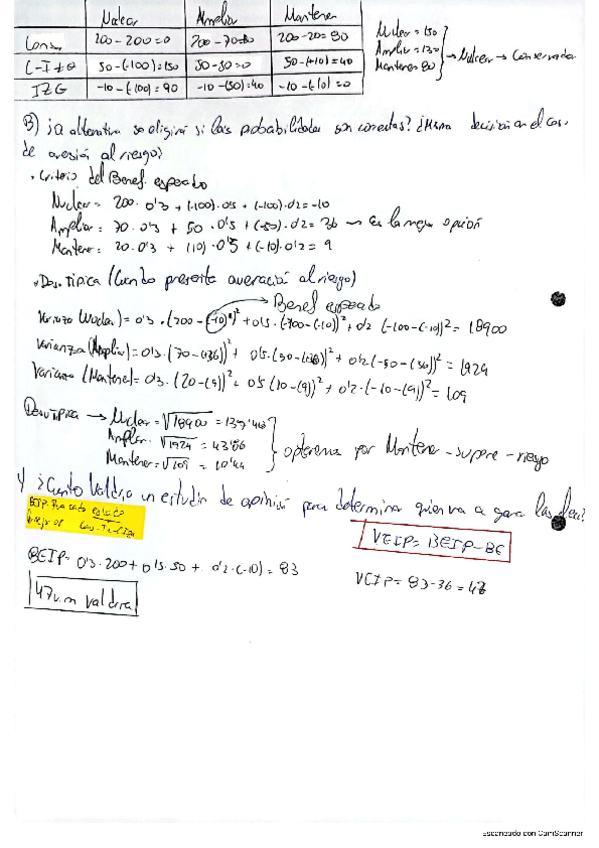 Nuclear Ampliar Mantener
Cons. 200-200=0 200-70=80 200-20=80
C-IZQ 50-(-100)=150 50-50=0 50-(+10)=40
IZG -10-(-100)=90 -10-(50)=40 -10-(-10)=0
Nuclear = 150
Ampliar = 130
Mantener = 80
→ Nuclear → Conservador
B) ¿a alternativa se eligirá si las probabilidades son correctas? ¿Misma decisión en el caso
de aversión al riesgo?
• Criterio del Benef. esperado
Nuclear = 200. 0'3 + (-100). 0'5 + (-100). 0'2 = -10
Ampliar = 70. 0'3 + 50. 0'5 + (-50). 0'2 = 36 → es la mejor opción
Mantener = 20. 0'3 + (10). 0'5 + (-10). 0'2 = 9
• Des. típica (Cuando presenta aversión al riesgo)
→ Benef esperado
Varianza (Nuclear) = 0'3. (200-(-10))² + 0'5. (-100-(-10))² + 0'2 (-100-(-10))² = 18900
Varianza (Ampliar) = 0'3. (70-(36))² + 0'5. (50-(36))² + 0'2 (-50-(36))² = 1924
Varianza (Mantener) = 0'3. (20-(9))² + 0'5 (10-(9))² + 0'2. (-10-(9))² = 109
Desv típica → Nuclear = √18900 = 137'48
Ampliar = √1924 = 43'86
Mantener = √109 = 10'44
optaremos por Mantener - supone - riesgo
¿Cuánto Valdría un estudio de opinión para determinar quien va a ganar las elec?
BEIP: Para cada estado
VEIP = BEIP - BE
BEIP = 0'3. 200 + 0'5. 50 + 0'2. (-10) = 83
VEIP = 83-36 = 47
47 u.m valdría
Escaneado con CamScanner